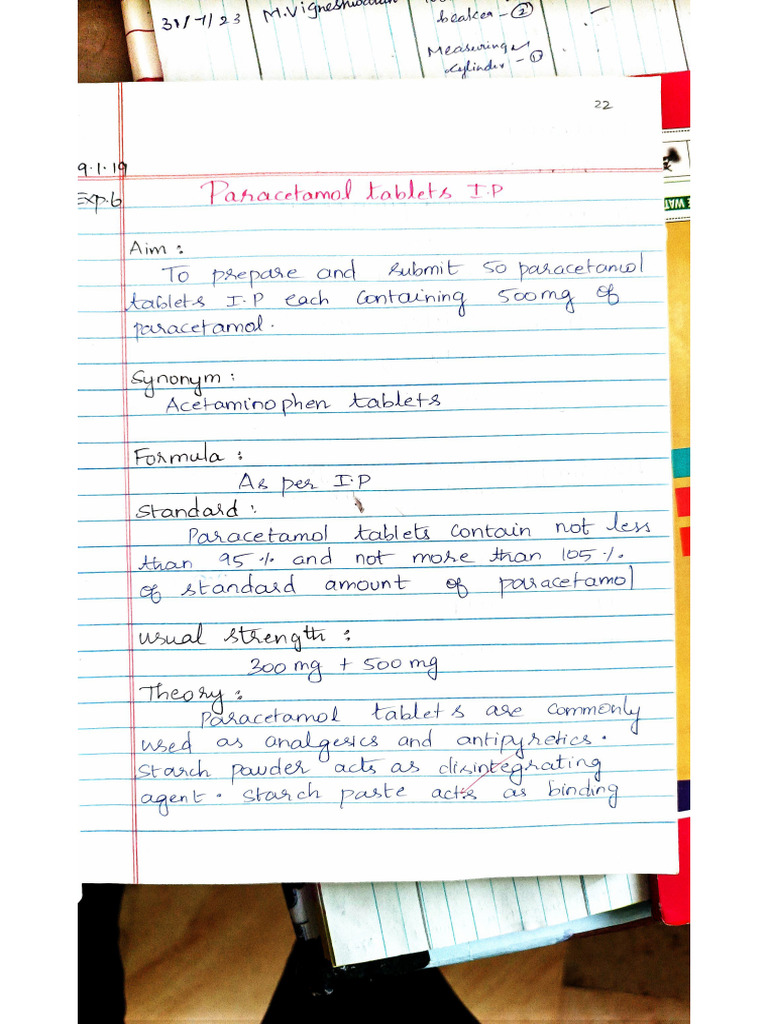 31/7/23 M.Vigneshwaran
beaker - ②
Measuring
cylinder - ①
22
9.1.19
Exp.6
Paracetamol tablets I.P
Aim :
To prepare and submit 50 paracetamol
tablets I.P each containing 500mg of
paracetamol.
Synonym :
Acetaminophen tablets
Formula :
As per I.P
Standard :
Paracetamol tablets contain not less
than 95 % and not more than 105 %
of standard amount of paracetamol
usual strength :
300 mg + 500 mg
Theory :
Paracetamol tablets are commonly
used as analgesics and antipyretics.
Starch powder acts as disintegrating
agent. Starch paste acts as binding